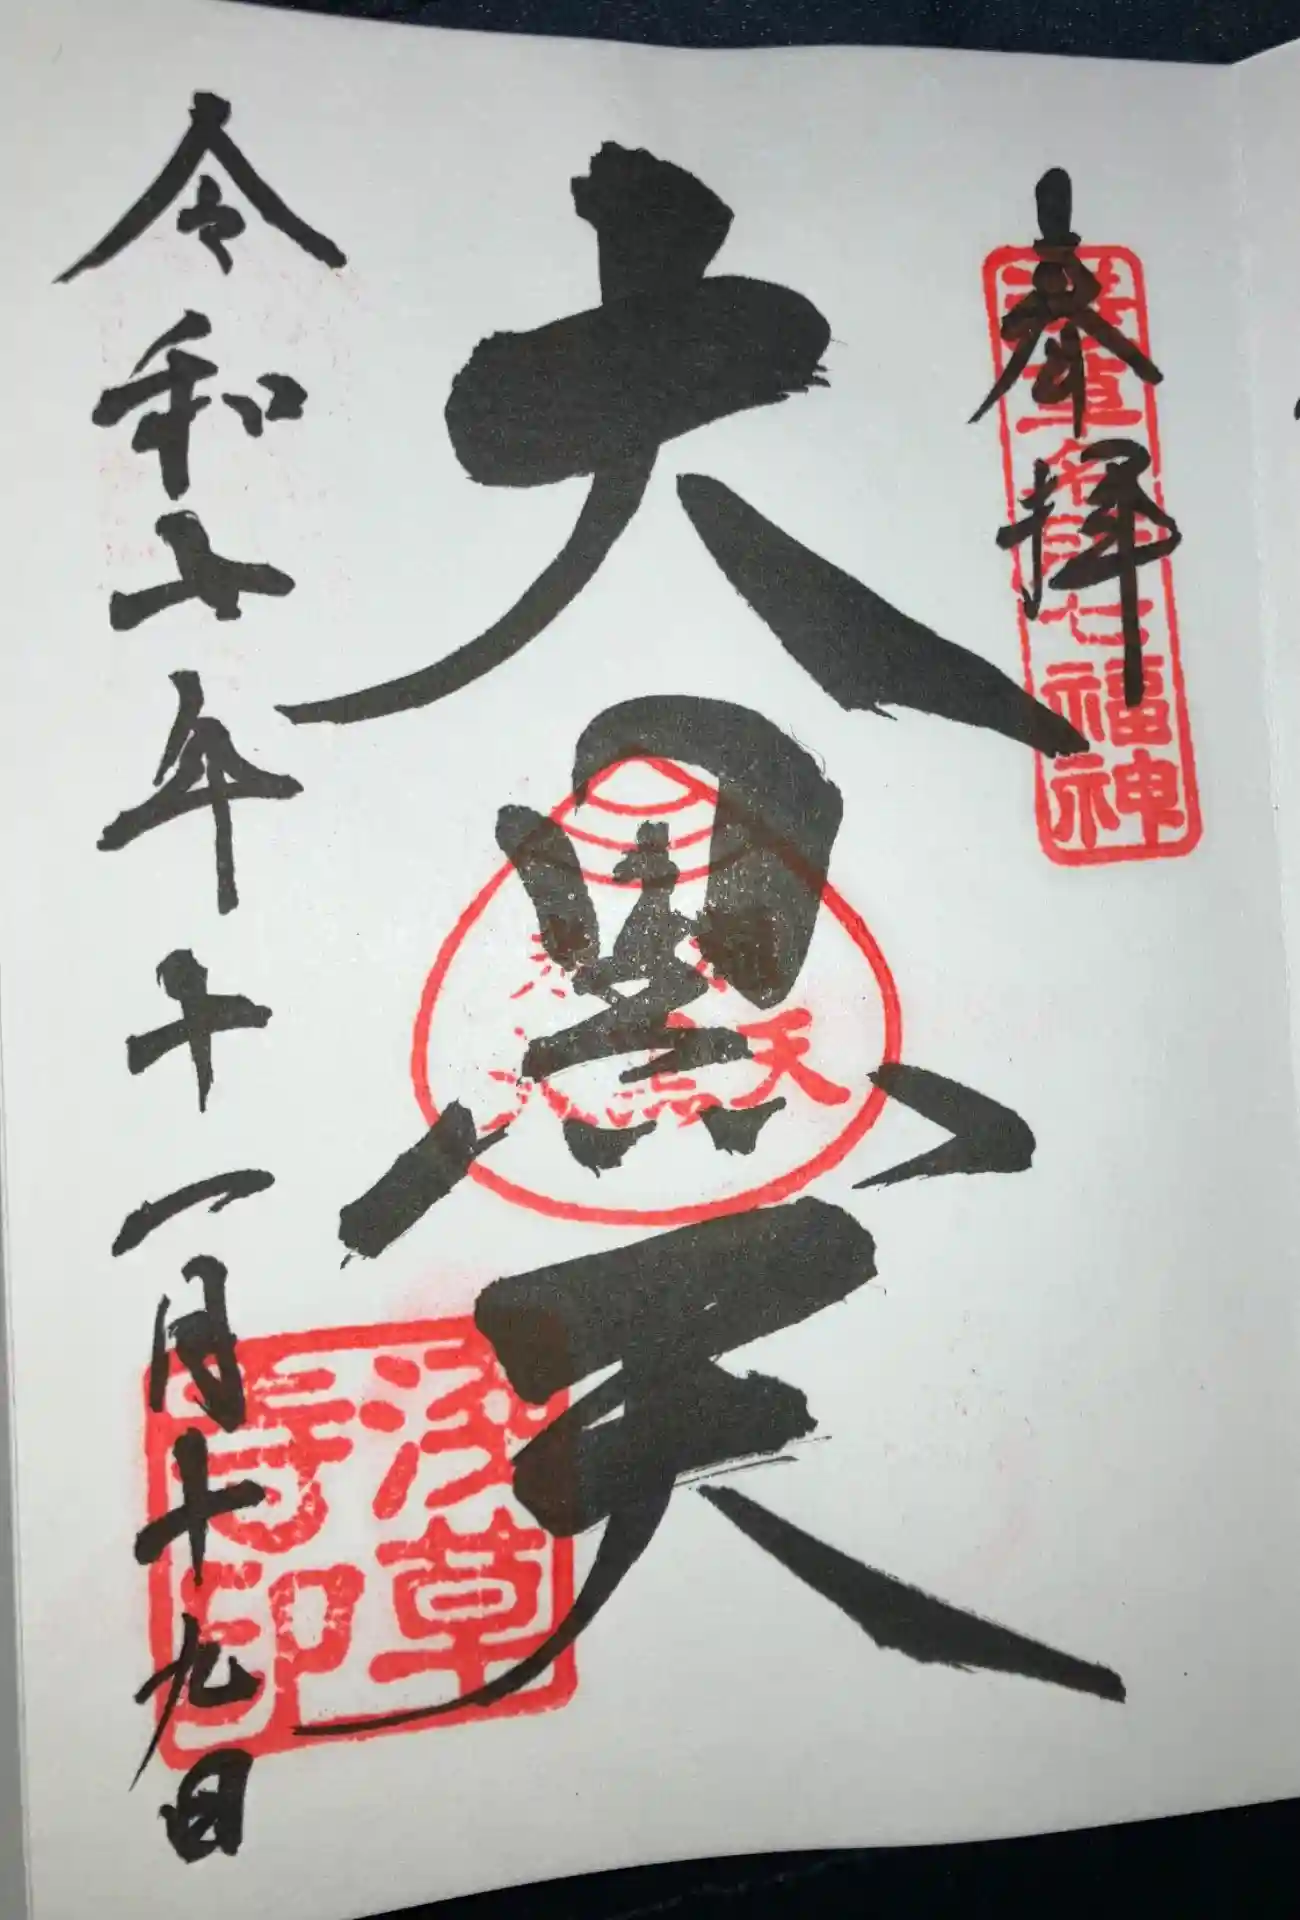 奉拝
浅草名所七福神
大黒天
大黒天
浅草寺印
令和七年十一月十九日